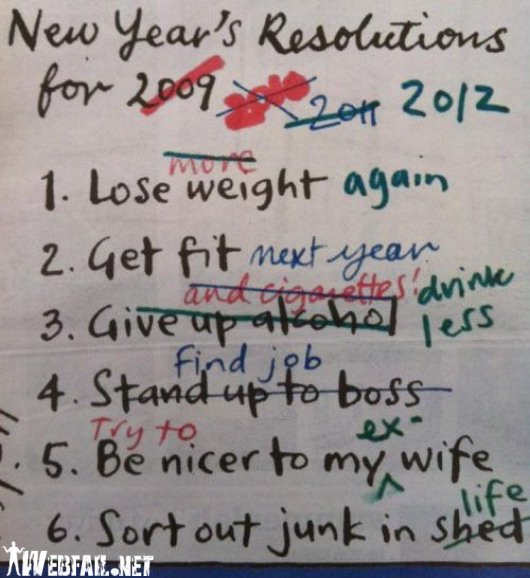 New Year's Resolutions
for 2009 2011 2012
more
1. Lose weight again
2. Get fit next year
and cigarettes!
3. Give up alcohol drink less
find job
4. Stand up to boss
Try to
ex-
5. Be nicer to my wife
life
6. Sort out junk in shed
WEBFAIL.NET